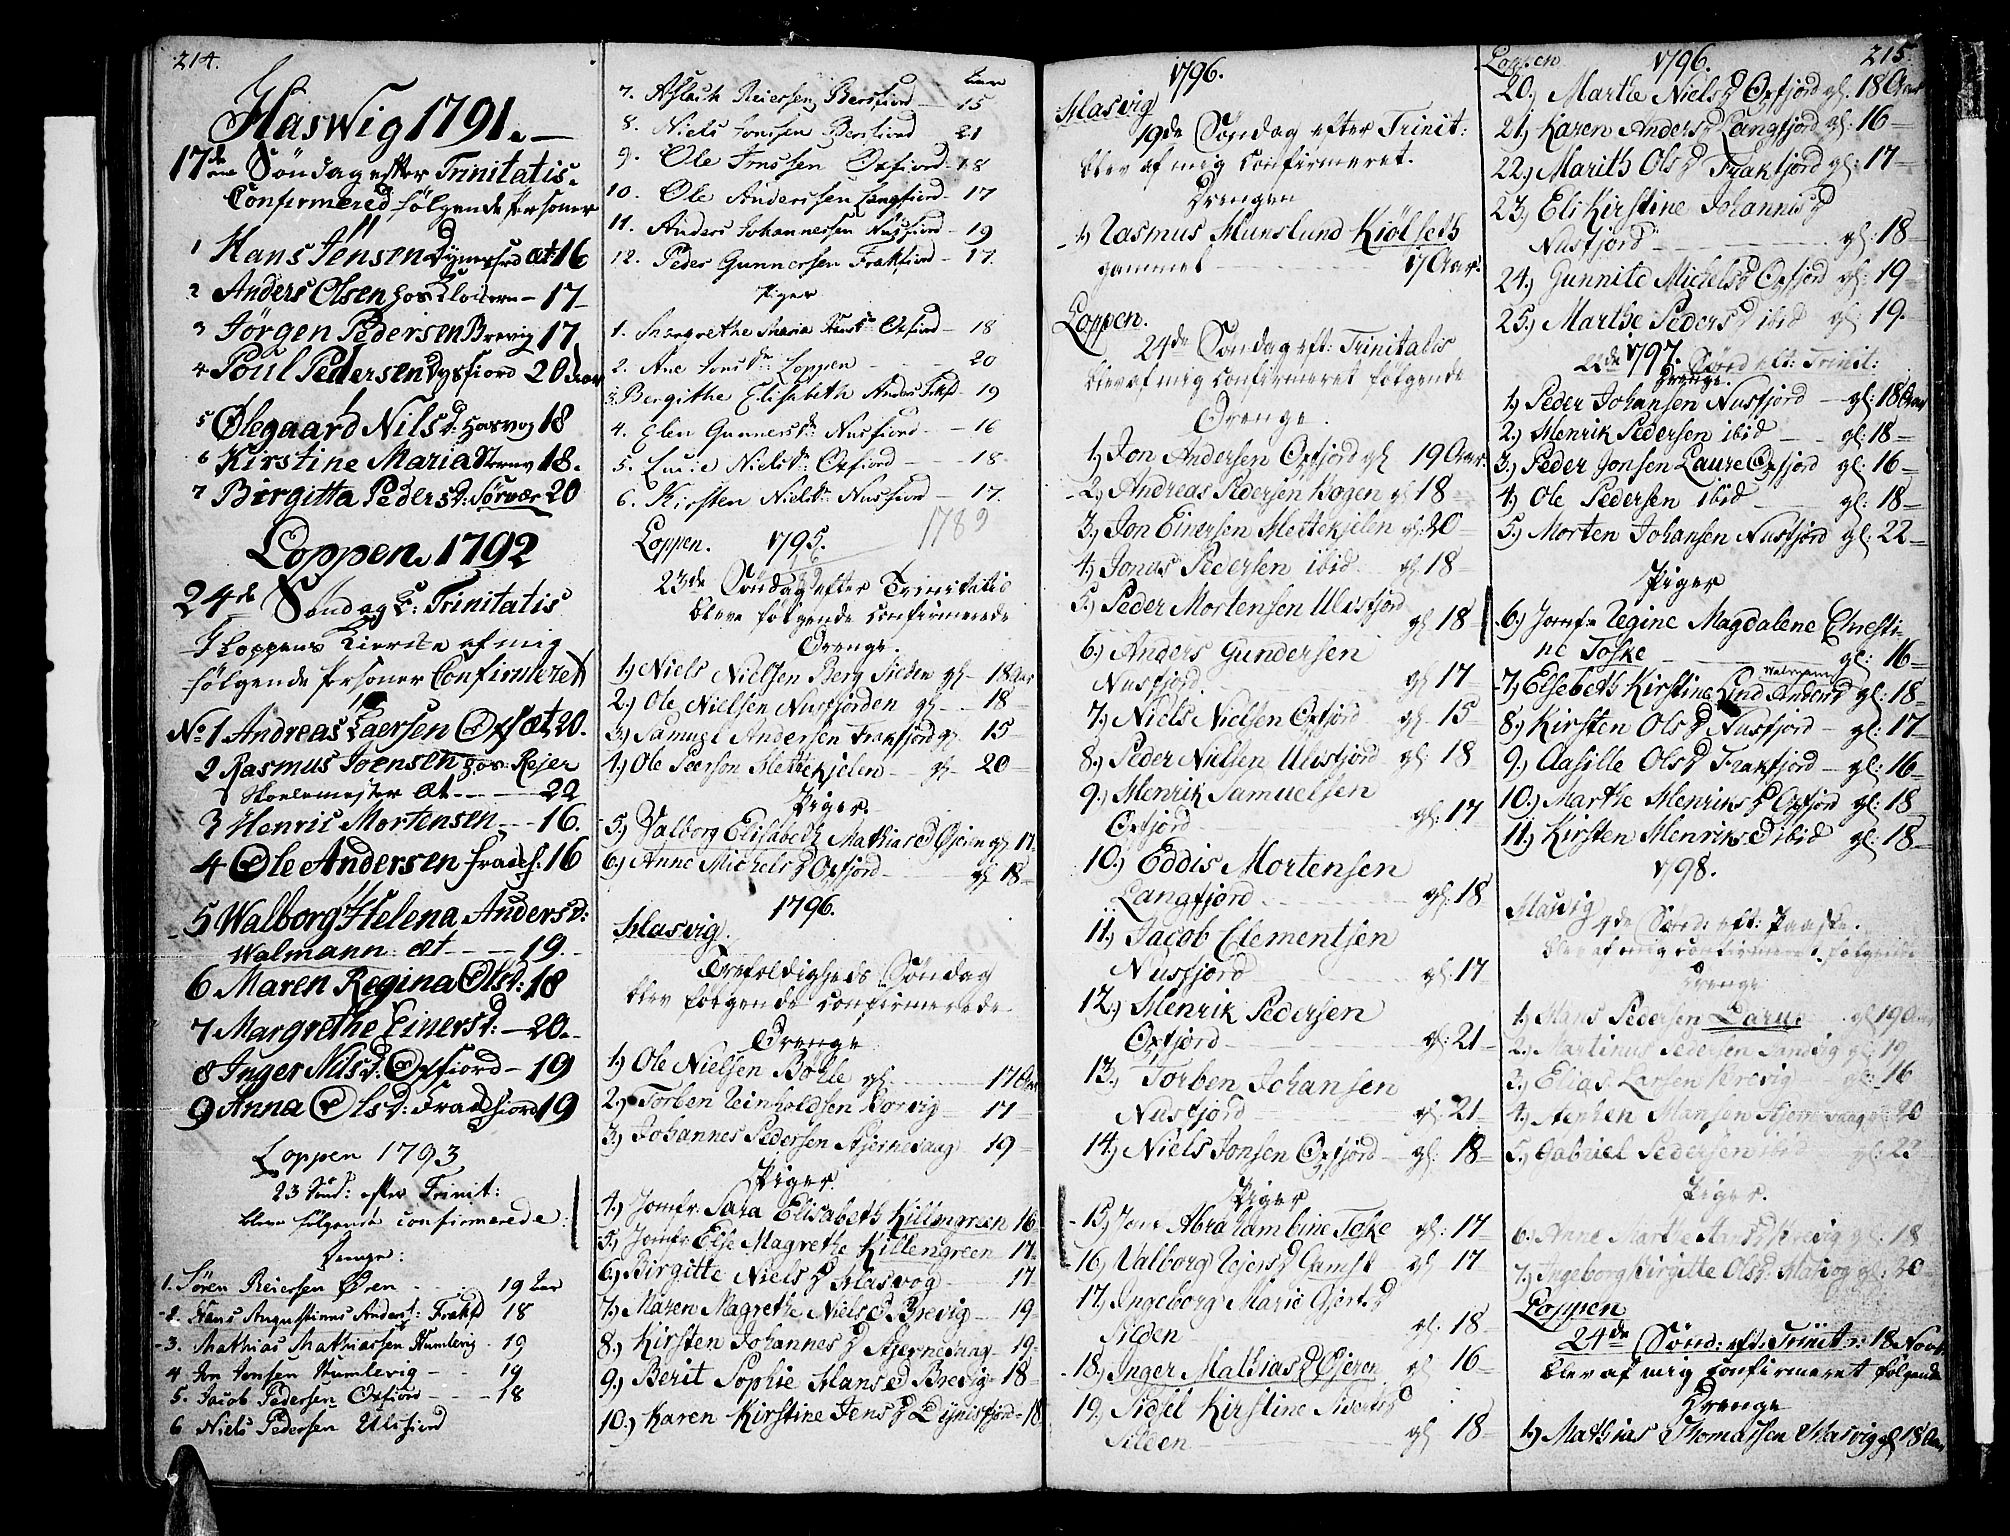 214.
Haswig 1791.
17de Søndag efter Trinitatis.
Confirmered følgende Personer
1 Hans Jensen Dynesfiord æt 16
2 Anders Olsen hos Klockeren - 17
3 Jörgen Pedersen Brevig 17
4 Poul Pedersen Dysfiord 20 Aar
5 Ølegaard Nilsd: Hasvog 18
6 Kirstine Maria 18.
7 Birgitta Pedersd: Sörvær 20
Loppen 1792
24de Søndag E: Trinitatis
I Loppens Kierke af mig
følgende Personer Confirmeret
No 1 Andreas Laersen Oxf æt 20.
2 Rasmus Joensen hos Rejer
Skolemester æt - 22
3 Henric Mortensen - 16.
4 Ole Andersen Fracf. 16
5 Walborg Helena Andersd:
Walmann æt - 19.
6 Maren Regina Olsd: 18
7 Margrethe Einersd: - 20.
8 Inger Nilsd. Oxfiord - 19
9 Anna Olsd: Frackfiord 19
Loppen 1793
23 Sønd: efter Trinit:
bleve følgende confirmerede:
Drenge:
1. Sören Reiersen Øren - 19 Aar
2. Hans Augustinus Anders: Frakfd 18
3. Mathias Mathiassen Humlevig - 19
4 Jon Jonsen Humlevig - 19
5. Jacob Pedersen Oxfiord - 18
6 Niels Pedersen Ulsfiord
Aar
7. Aslach Reiersen Bersfiord - 15
8. Niels Jonsen Bersfiord - 21
9. Ole Jonssen Oxfiord - 18
10. Ole Anderssen Langfiord - 17
11. Anders Johannessen Nusfiord - 19
12. Peder Gunnersen Frakfiord - 17.
Piger
1. Margrethe Maria Oxfiord - 18
2. Ane Jonsdr Loppen - 20
3. Bergithe Elisabeth Anders Frakfd - 19
4. Elen Gunnersdr: Nusfiord - 16
5. Lucie Nielsdr: Oxfiord - 18.
6. Kirsten Nielsdr: Nusfiord - 17.
1789
Loppen. 1795.
23de Søndag efter Trinitatis
bleve følgende confirmerede
Drenge.
1.) Niels Nielsen Berg Silden gl - 18 Aar
2.) Ole Nielsen Nusfjorden gl - 18 -
3.) Samuel Andersen Frakfjord gl - 15 -
4.) Ole Peerson Mettekjelen - gl - 20 -
Piger.
5.) Valborg Elisabeth Mathiasd Øjeren gl 17.
6.) Anne Michelsd Oxfjord - gl 18 -
1796.
Hasvig.
Trefoldigheds Søndag
blev følgende confirmerede
Drenge
1.) Ole Nielsen Bölle gl - 17 Aar
2.) Torben Reinholdsen Corvig - 17 -
3.) Johannes Pedersen Stjernevaag - 19 -
Piger.
4.) Jomfr. Sara Elisabeth Killengreen 16 -
5.) Jomfr Else Magrethe Killengreen 17 -
6.) Birgitte Nielsd Hasvog - 17
7.) Maren Magrethe Nielsd Brevig - 19 -
8.) Kirsten Johannesd Stjernevaag - 19 -
9.) Berit Sophie Hansd Brevig - 18 -
10.) Karen Kirstine Jensd Dynisfjord - 18
1796.
Hasvig
19de Søndag efter Trinit:
blev af mig confirmeret.
Drengen
1.) Rasmus Munslund Kiölseth
gammel - 17 Aar.
Loppen.
24de Søndag eft: Trinitatis
blev af mig confirmeret følgende
Drenge.
1.) Jon Andersen Oxfjord gl 19 Aar
2.) Andreas Pedersen Hogen gl 18 -
3.) Jon Einersen Mettekjelen gl: 20 -
4.) Jonas Pedersen ibid. gl: 18 -
5.) Peder Mortensen Ulvsfjord
gl 18
6.) Anders Gundersen
Nusfjord. gl 17 -
7.) Niels Nielsen Oxfjord gl. 15 -
8.) Peder Nielsen Ulvsfjord gl. 18 -
9.) Henrik Samuelsen
Oxfjord gl: 17 -
10.) Eddis Mortensen
Langfjord gl: 18
11.) Jacob Clementsen
Nusfjord gl: 17 -
12.) Henrik Pedersen
Oxfjord gl: 21 -
13.) Torben Johansen
Nusfjord gl: 21 -
14.) Niels Jonsen Oxfjord - gl: 18 -
Piger
15.) Jomf Abrahambine Foske gl: 17 -
16. Valborg Reiersd Gamst gl 17
17. Ingeborg Marie Gjertsd
Silden gl: 18 -
18.) Inger Mathiasd Øjeren gl 16 -
19. Sidsel Kirstine Sivertsd
Silden gl 18 -
Loppen 1796. 215.
20.) Marthe Nielsd Oxfjord gl. 18 Aar
21.) Karen Andersd Langfjord gl: 16 -
22.) Marith Olsd Frakfjord gl: 17 -
23.) Eli Kirstine Johannisd
Nusfjord gl: 18 -
24.) Gunnite Michelsd Oxfjord gl: 19 -
25.) Marthe Pedersd ibid gl: 19. -
1797.
22de Sönd eft: Trinit:
Drenge.
1.) Peder Johansen Nusfjord - gl: 18 Aar
2.) Henrik Pedersen ibid - gl: 18 -
3.) Peder Jonsen Laure Oxfjord gl: 16 -
4.) Ole Pedersen ibid - gl: 18 -
5.) Morten Johansen Nusfjord gl: 22 -
Piger
6.) Jomfr Regine Magdalene Christi-
ne Foske gl: 16 -
7.) Elsebeth Kirstine Lind gl: 18 -
8.) Kirsten Olsd Nusfjord - gl: 17 -
9.) Aasille Olsd Frakfjord - gl: 16 -
10.) Marthe Henriksd Oxfjord gl: 18 -
11.) Kirsten Henriksd ibid gl: 18 -
1798.
Hasvig
4de Sönd: eft: Paaske.
blev af mig confirmeret følgende
Drenge
1.) Hans Pedersen Darup gl 19 Aar
2.) Martinus Pedersen Sandvig gl: 19
3.) Elias Larsen Brevig gl: 16
4.) Stephen Hansen Stjernevaag gl: 20
5.) Gabriel Pedersen ibid gl: 22 -
Piger.
6.) Anne Marthe Arnsd Brevig gl: 18
7.) Ingeborg Birgitte Olsd. Hasvog gl: 20 -
Loppen
24de Sønd: eft. Trinit: 18 Novbr
blev af mig confirmeret følgende
Drenge
1.) Mathias Thomassen Hasvig gl 18 Aar